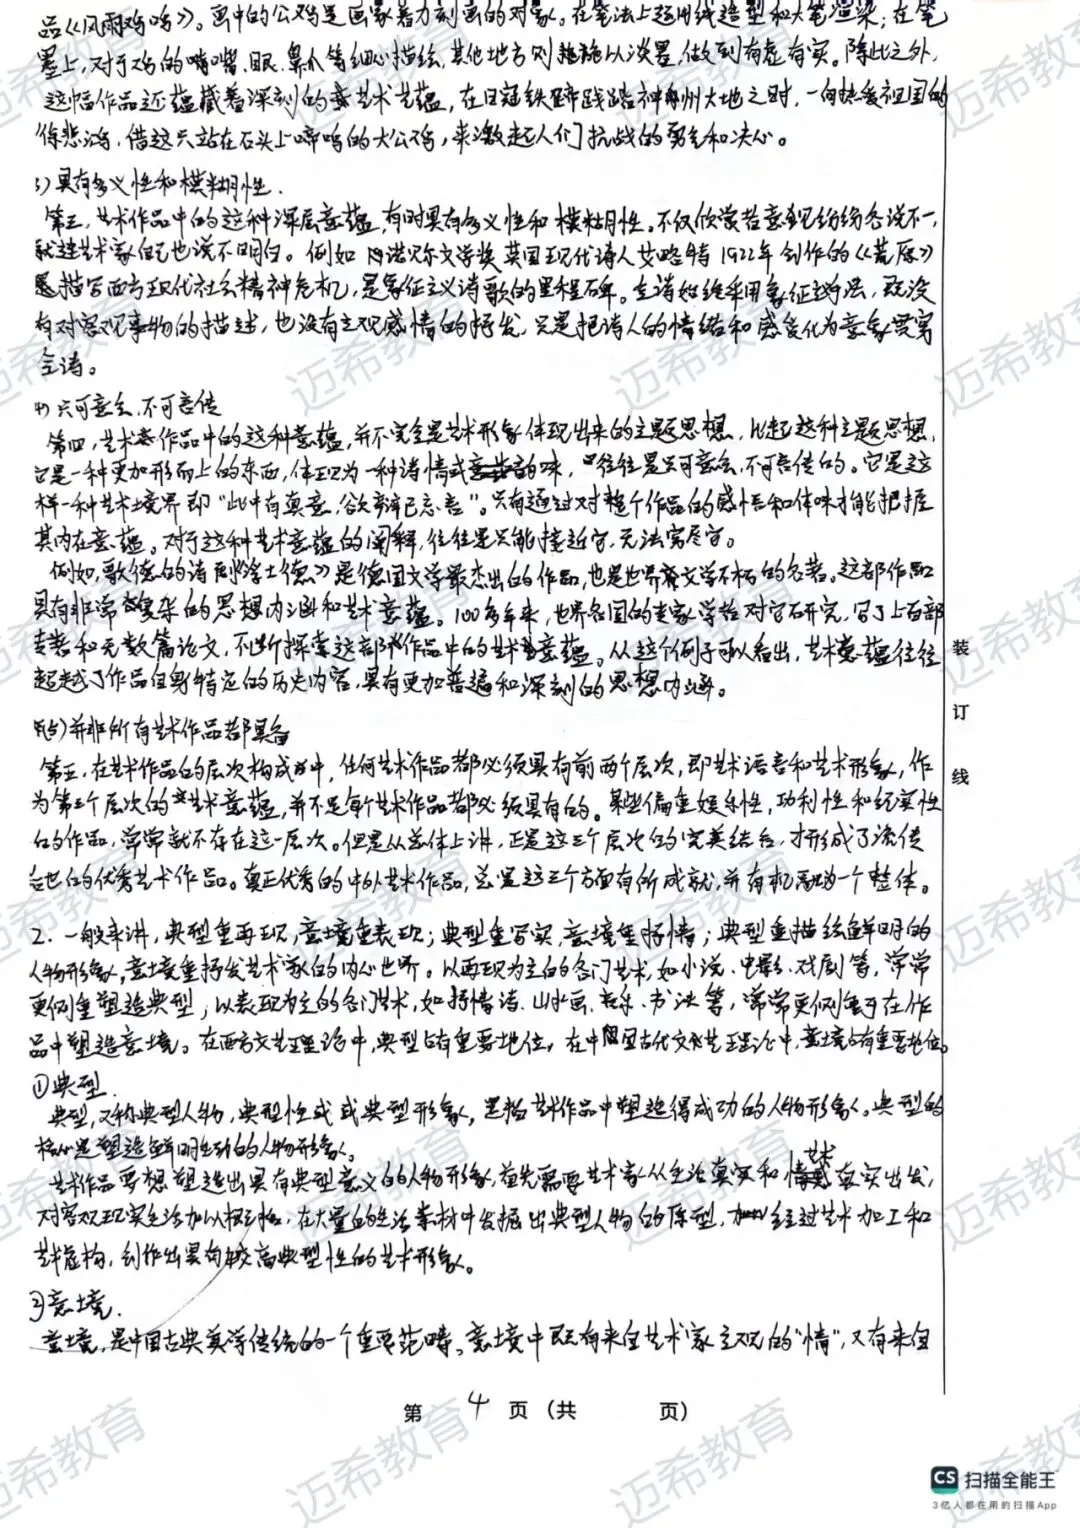 品《风雨鸡鸣》。画中的公鸡是画家着力刻画的对象。在笔法上运用线造型和大笔渲染;在笔
墨上,对于鸡的嘴嘴、眼、鼻、爪等细心描绘,其他地方则施以淡墨,做到有虚有实。除此之外,
这幅作品还蕴藏着深刻的艺术意蕴,在日寇铁蹄践踏神州大地之时,一向热爱祖国的
徐悲鸿,借这只站在石头上啼鸣的大公鸡,来激起人们抗战的勇气和决心。
3)具有多义性和模糊性.
第三,艺术作品中的这种深层意蕴,有时具有多义性和模糊性。不仅欣赏者意见纷纷各说不一,
就连艺术家自己也说不明白。例如 诺贝尔文学奖英国现代诗人艾略特1922年创作的《荒原》
描写西方现代社会精神危机,是象征主义诗歌的里程碑。全诗始终采用象征手法,既没
有对客观事物的描述,也没有主观感情的抒发,只是把诗人的情绪和感受化为意象贯穿
全诗。
4)只可意会,不可言传
第四,艺术作品中的这种意蕴,并不完全是艺术形象体现出来的主题思想,比起这种主题思想,
它是一种更加形而上的东西,体现为一种诗情或韵味,往往是只可意会,不可言传的。它是这
样一种艺术境界即“此中有真意,欲辩已忘言”。只有通过对整个作品的感悟和体味才能把握
其内在意蕴。对于这种艺术意蕴的阐释,往往是只能接近它,无法穷尽它。
例如,歌德的诗剧《浮士德》是德国文学最杰出的作品,也是世界文学不朽的名著。这部作品
具有非常复杂的思想内涵和艺术意蕴。100多年来,世界各国的专家学者对它研究,写了上百部
专著和无数篇论文,不断探索这部作品中的艺术意蕴。从这个例子可以看出,艺术意蕴往往
超越了作品自身特定的历史内容,具有更加普遍和深刻的思想内涵。
5)并非所有艺术作品都具备
第五,在艺术作品的层次构成中,任何艺术作品都必须具有前两个层次,即艺术语言和艺术形象,作
为第三个层次的艺术意蕴,并不是每个艺术作品都必须具有的。某些偏重娱乐性,功利性和纪实性
的作品,常常就不存在这一层次。但是从总体上讲,正是这三个层次的完美结合,才形成了流传
后世的优秀艺术作品。真正优秀的中外艺术作品,总是这三个方面有所成就,并有机融为一个整体。
2.一般来讲,典型重再现,意境重表现;典型重写实,意境重抒情;典型重描绘鲜明的
人物形象,意境重抒发艺术家的内心世界。以再现为主的各门艺术,如小说、电影、戏剧等,常常
更侧重塑造典型;以表现为主的各门艺术,如抒情诗、山水画、音乐、书法等,常常更侧重于在作
品中塑造意境。在西方文艺理论中,典型占有重要地位,在中国古代文艺理论中,意境占有重要地位。
①典型.
典型,又称典型人物,典型性或典型形象,是指艺术作品中塑造得成功的人物形象。典型的
核心是塑造鲜明生动的人物形象。
艺术作品要想塑造出具有典型意义的人物形象,首先需要艺术家从生活真实和艺术真实出发,
对客观现实生活加以概括,在大量的生活素材中发掘出典型人物的原型,经过艺术加工和
艺术虚构,创作出具有较高典型性的艺术形象。
②意境.
意境,是中国古典美学传统的一个重要范畴。意境中既有来自艺术家主观的“情”,又有来自
装
订
线
第 4 页(共 页)
CS 扫描全能王
3亿人都在用的扫描App
迈希教育